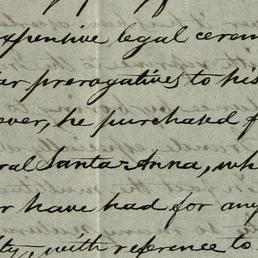 expensive legal cerem
ar prerogatives to his
over, he purchased f
ral Santa-Anna, wh
r have had for any
ty, with reference to